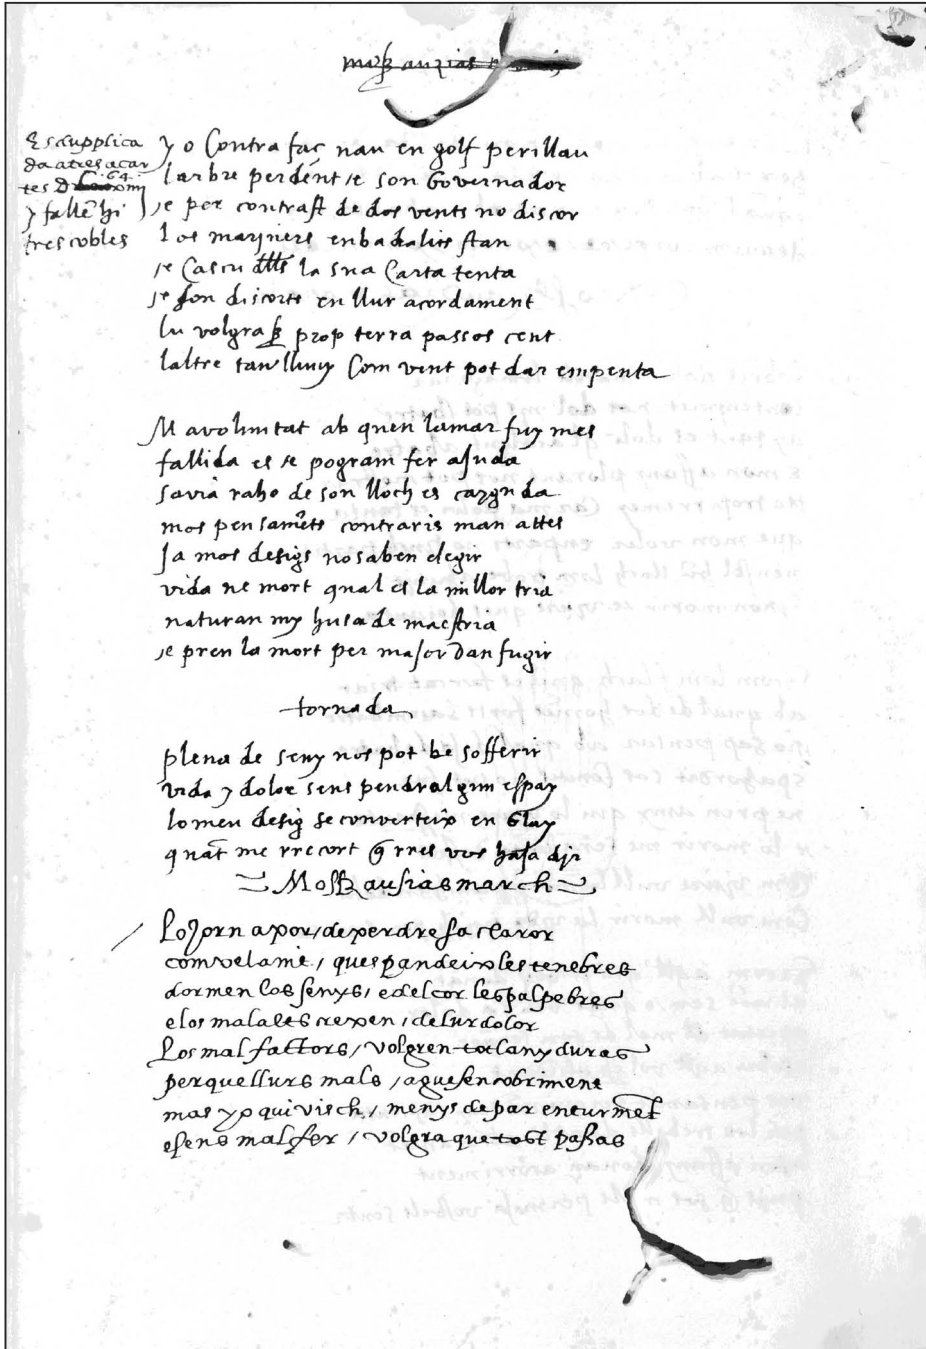 Es dupplica
da atres a car
tes D 64
y fallē hi
tres cobles
yo Contrafaç nau en golf perillan
larbre perdent se son Governador
se per contrast de dos vents no discor
los mariners enbadalits stan
se Cascu dells la sua Carta tenta
se son discorts en llur acordament
lu volgraß prop terra passos cent
laltre tan lluny Com vent pot dar empenta
Ma voluntat ab quen lamar fuy mes
fallida es se pogram fer ajuda
savia raho de son lloch es cayguda
mos pensamēts contraris man attes
Ja mos desigs no saben elegir
vida ne mort qual es la millor tria
naturan my husa de maestria
se pren la mort per major dan fugir
tornada
plena de seny nos pot be sofferir
vida y dolor sens pendral gun espay
lo meu desig se converteix en Glay
quāt me rrecort q rres vos haja dir
Moss ausias march
Lo Jorn a por / de perdre sa claror
com ve la nit / que spandeix les tenebres
dormen los senys / e del cor les palpebres
e los malalts crexen / de lur dolor
Los mal factors / volgren tot lany duras
perque llurs mals / aguesen cobriment
mas yo qui visch / menys de par en turmēt
e sens mal fer / volgra que tost passas